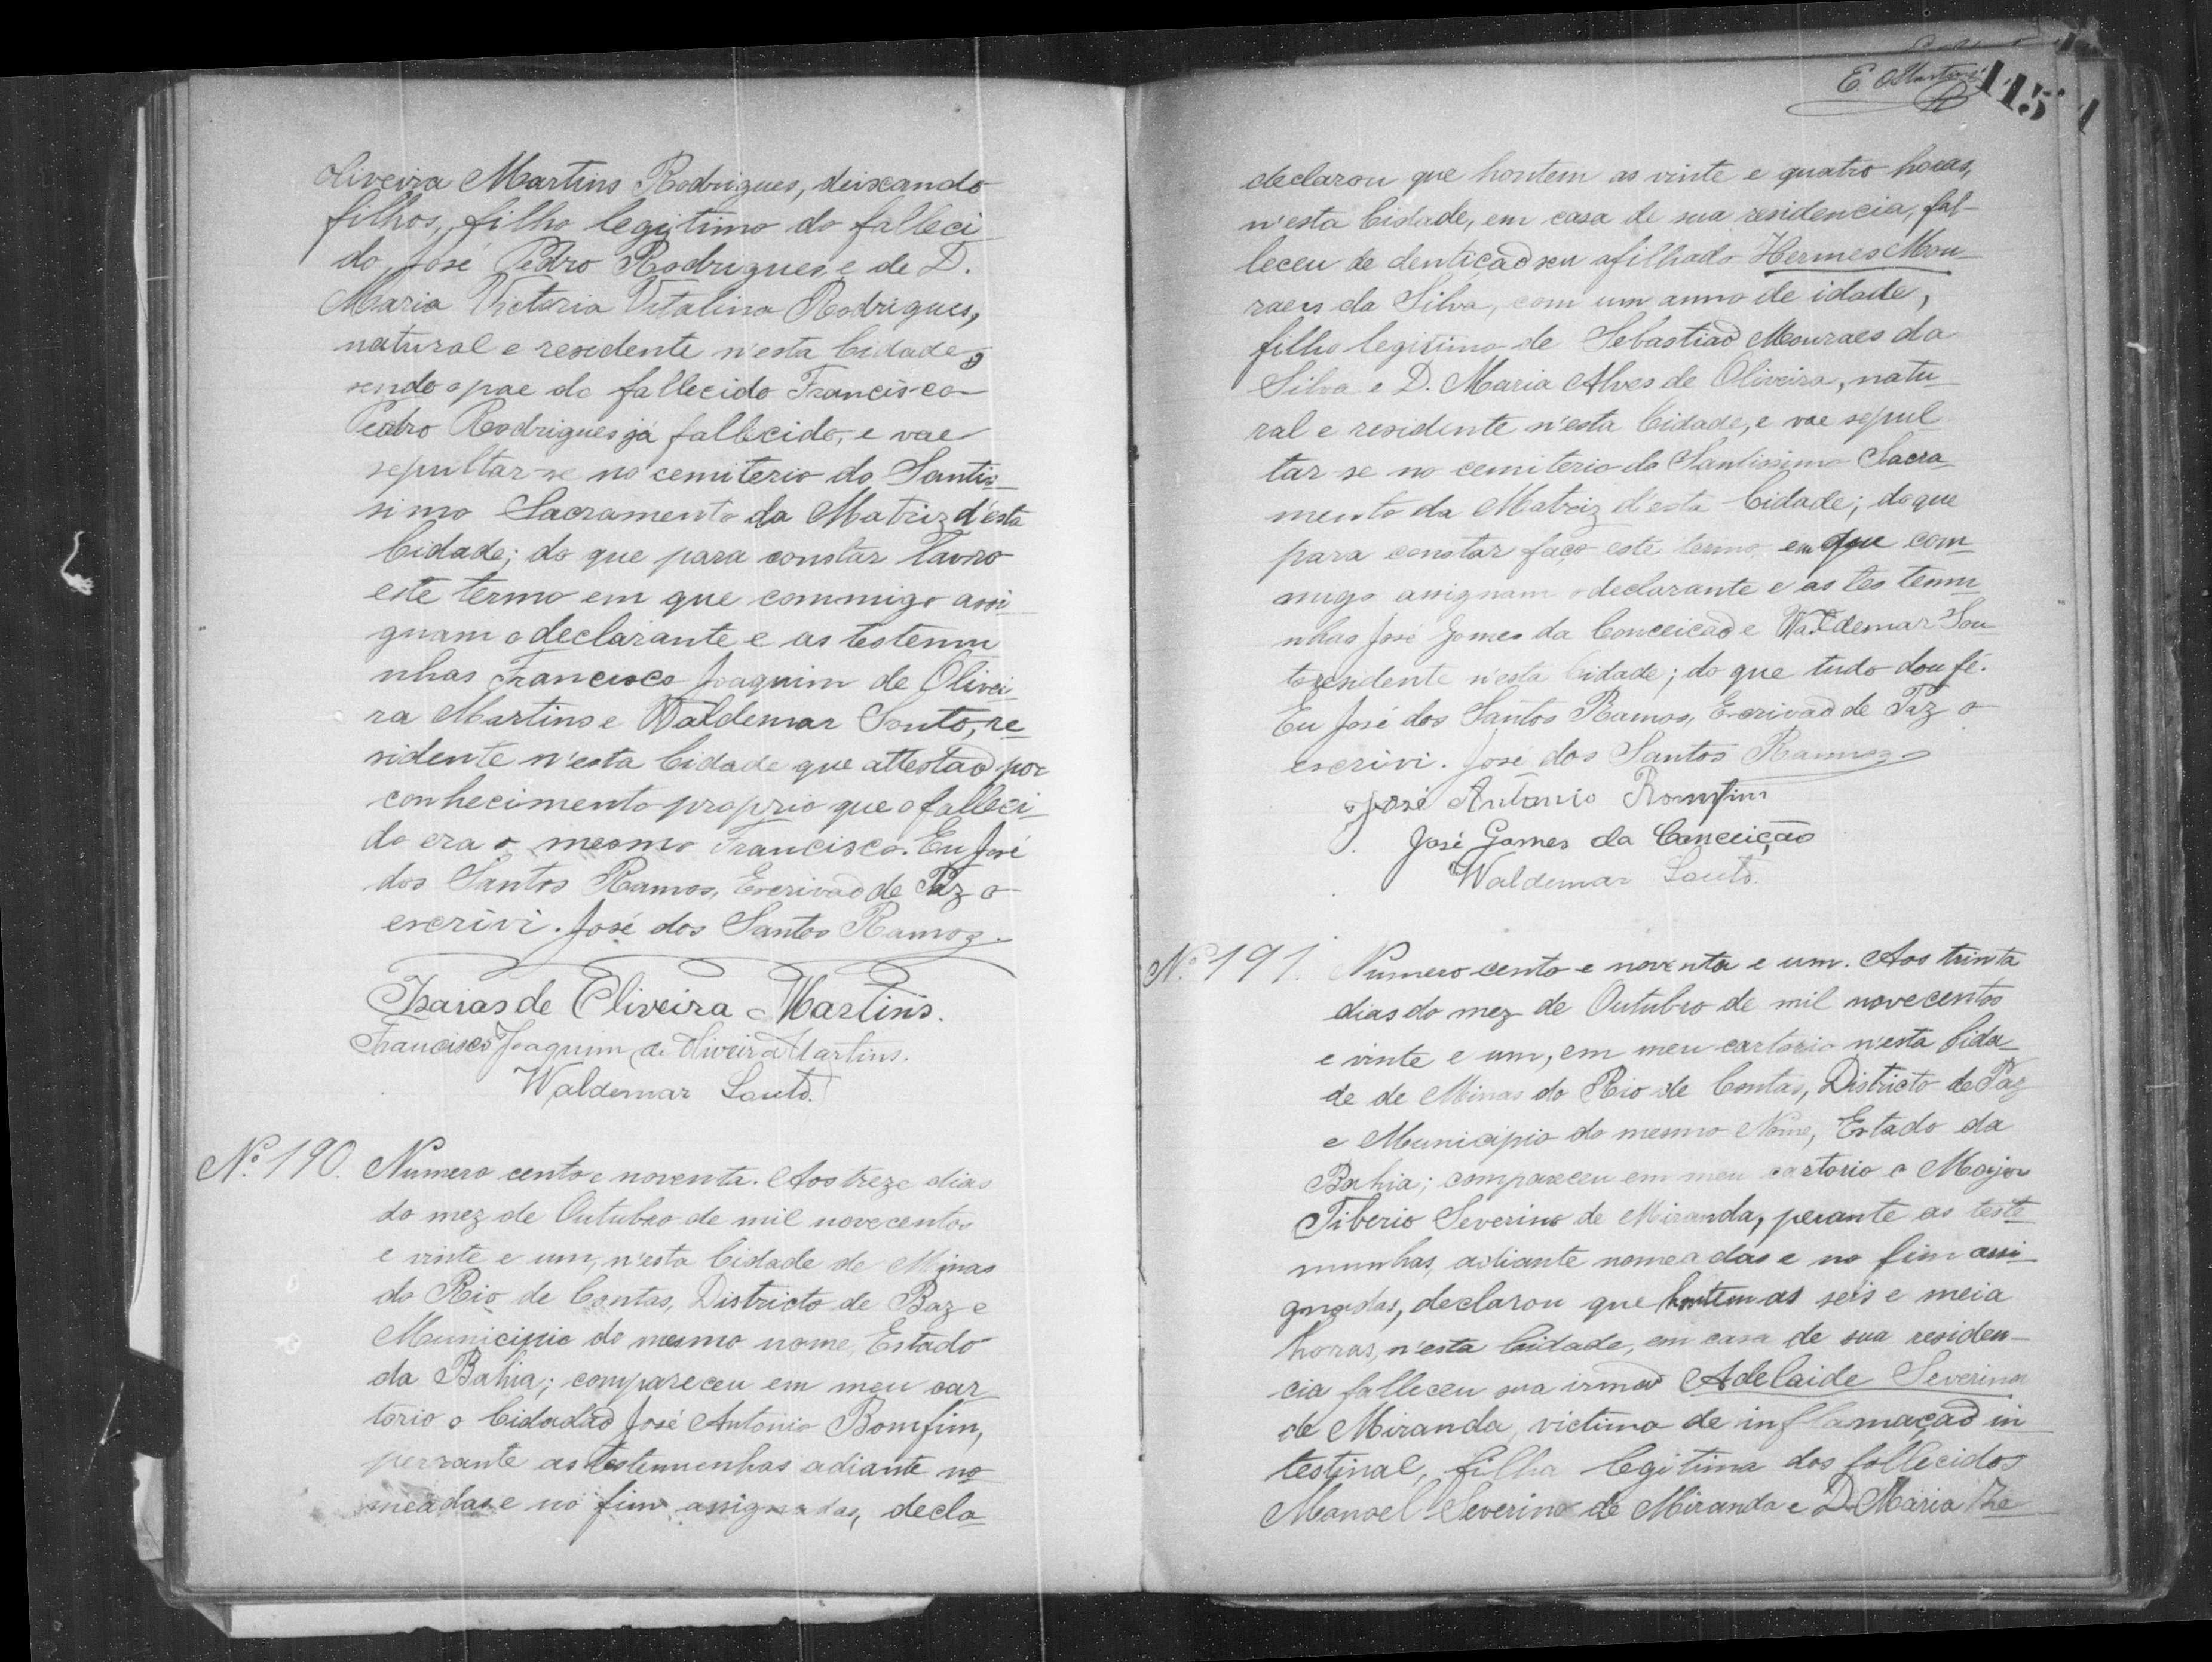 Oliveira Martins Rodrigues, deixando
filhos, filho legitimo do falleci
do José Pedro Rodrigues e de D.
Maria Victoria Vitalina Rodrigues,
natural e residente n'esta Cidade,
sendo o pae do fallecido Francisco
Pedro Rodrigues já fallecido, e vae
sepultar-se no cemiterio do Santis-
simo Sacramento da Matriz d'esta
Cidade; do que para constar lavro
este termo em que commigo assi-
gnam o declarante e as testemu
nhas Francisco Joaquim de Olivei
ra Martins e Waldemar Souto, re-
sidente n'esta Cidade que attestaõ por
conhecimento proprio que o falleci-
do era o mesmo Francisco. Eu José
dos Santos Ramos, Escrivaõ de Paz o
escrivi. José dos Santos Ramos.
Isaias de Oliveira Martins.
Francisco Joaquim de Oliveira Martins.
Waldemar Souto.
Nº 190. Numero cento e noventa. Aos treze dias
do mez de Outubro de mil novecentos
e vinte e um, n'esta Cidade de Minas
do Rio de Contas, Districto de Paz e
Municipio do mesmo nome, Estado
da Bahia; compareceu em meu car-
torio o Cidadaõ José Antonio Bomfim,
perrante as testemunhas adiante no-
meadas e no fim assignadas, decla-
E. Martins
115
declarou que hontem as vinte e quatro horas,
n'esta Cidade, em casa de sua residencia, fal-
leceu de dentiçaõ seu afilhado Hermes Mou-
raes da Silva, com um anno de idade,
filho legitimo de Sebastiaõ Mouraes da
Silva e D. Maria Alves de Oliveira, natu-
ral e residente n'esta Cidade, e vae sepul-
tar-se no cemiterio do Santissimo Sacra-
mento da Matriz d'esta Cidade; do que
para constar faço este termo em que com-
migo assignam o declarante e as testemu-
nhas José Gomes da Conceicaõ e Waldemar Sou-
to, residente n'esta Cidade; do que tudo dou fé.
Eu José dos Santos Ramos, Escrivaõ de Paz o
escrivi. José dos Santos Ramos.
José Antonio Bomfim
José Gomes da Conceição
Waldemar Souto.
Nº 191. Numero cento e noventa e um. Aos trinta
dias do mez de Outubro de mil novecentos
e vinte e um, em meu cartorio n'esta Cida-
de de Minas do Rio de Contas, Districto de Paz
e Municipio do mesmo Nome, Estado da
Bahia; compareceu em meu cartorio o Major
Tiberio Severino de Miranda, perante as teste-
munhas, adiante nomeadas e no fim assi-
gnadas, declarou que hontem as seis e meia
horas, n'esta Cidade, em casa de sua residen-
cia falleceu sua irmaõ Adelaide Severina
de Miranda, victima de inflamaçaõ in-
testinal, filha legitima dos fallecidos
Manoel Severino de Miranda e D. Maria